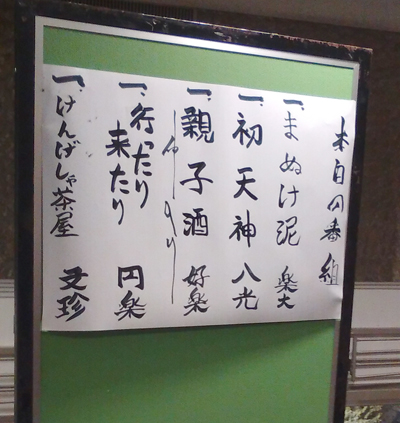 本日の番組
一、まぬけ泥 楽大
一、初天神 八光
一、親子酒 好楽
一、行ったり来たり 円楽
一、けんげしゃ茶屋 文珍